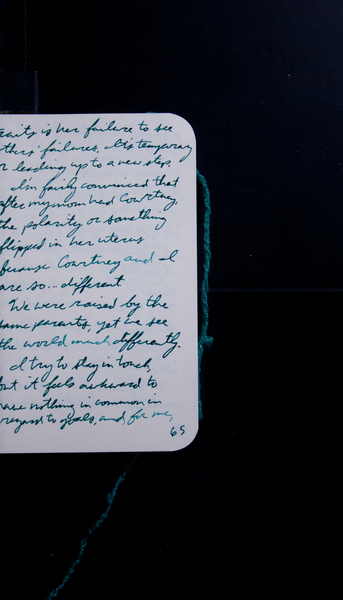 is her failure to see
failures. It's temporary
or leading up to a new step.
I'm fairly convinced that
after my mom had Courtney,
the polarity or something
flipped in her uterus
because Courtney and I
are so... different
We were raised by the
same parents, yet we see
the world much differently.
I try to stay in touch,
but it feels awkward to
have nothing in common in
regard to goals, and, for me,
65